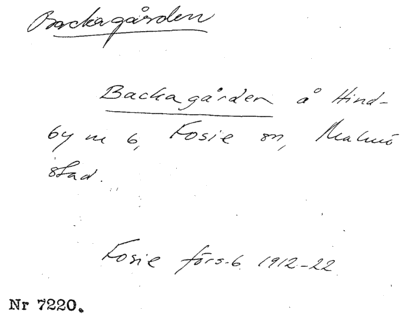 Backagården
Backagården å Hind-
by nr 6, Fosie sn, Malmö
stad.
Fosie förs.b. 1912-22
Nr 7220.